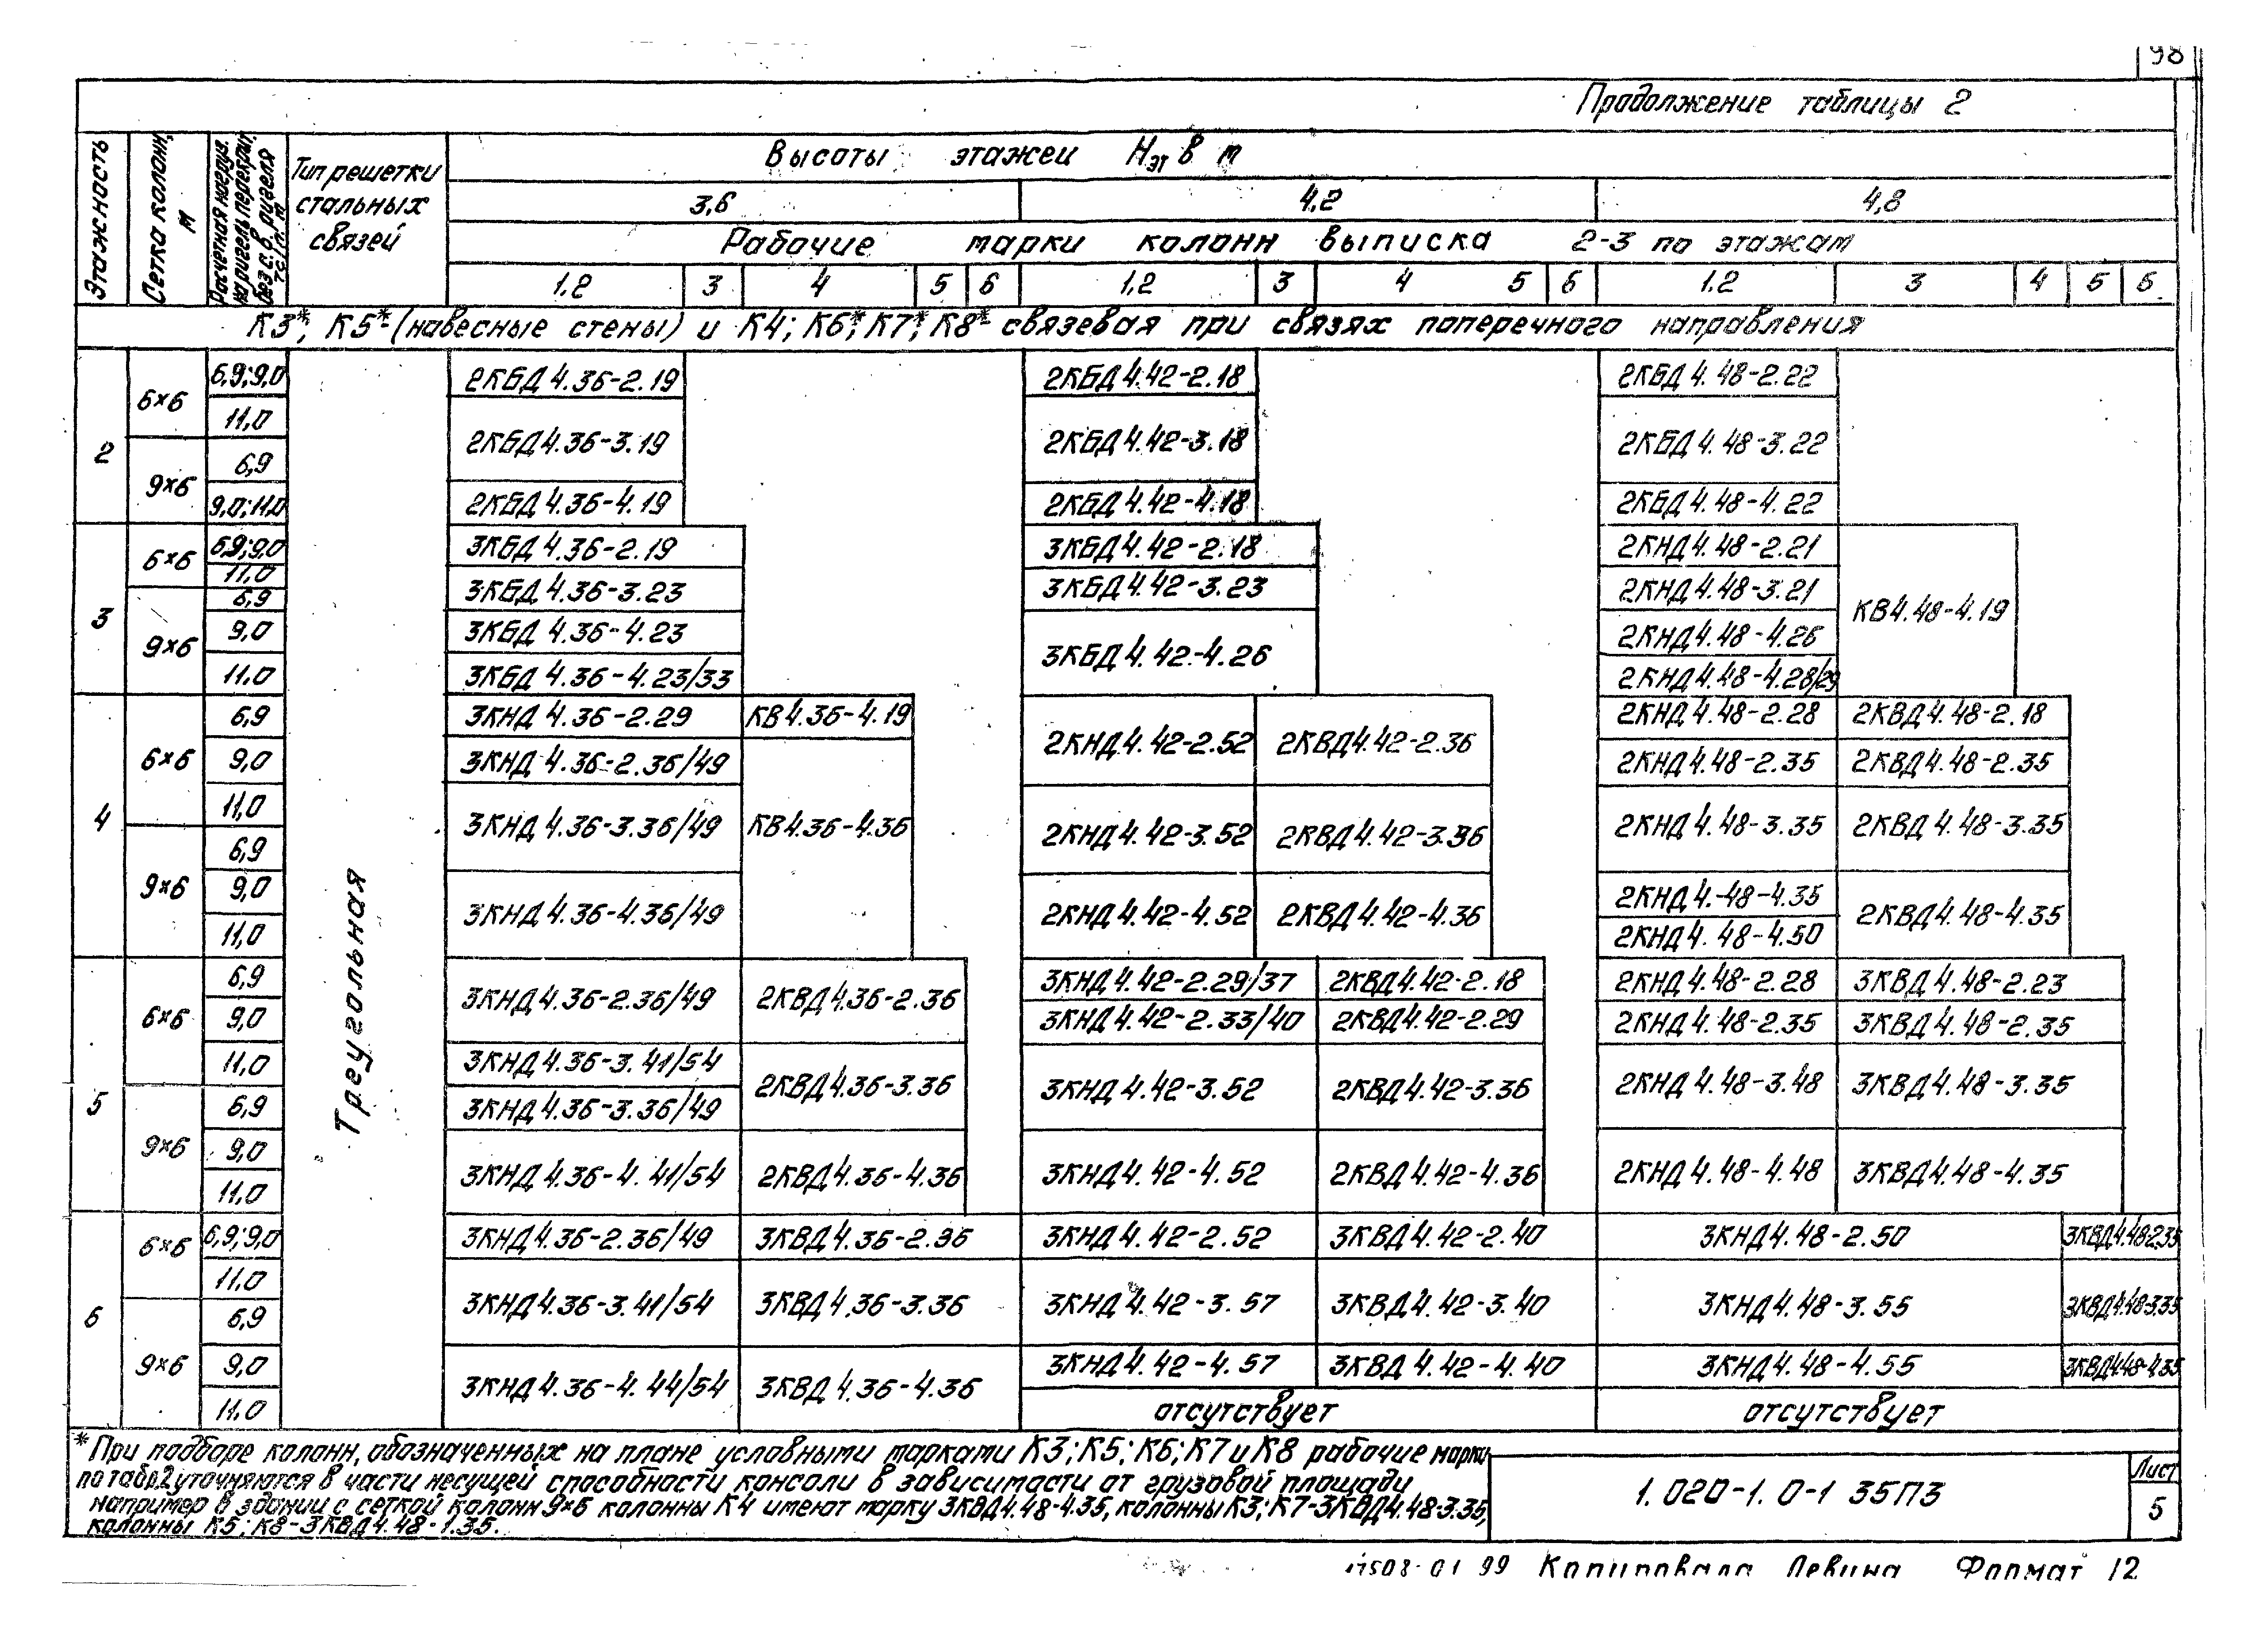 98
Продолжение таблицы 2
Этажность
Сетка колонн, м
Расчетная нагруз. на ригель перекрыт. без с.в. ригеля тс/п.м
Тип решетки стальных связей
Высоты этажей Нэт в м
3,6 4,2 4,8
Рабочие марки колонн выписка 2-3 по этажам
1.2 3 4 5 6 1,2 3 4 5 6 1.2 3 4 5 6
К3*; К5*-(навесные стены) и К4; К6*; К7*; К8*- связевая при связях поперечного направления
Треугольная
2 6×6 6,9;9,0 2КБД4.36-2.19 2КБД4.42-2.18 2КБД4.48-2.22
11,0 2КБД4.36-3.19 2КБД4.42-3.18 2КБД4.48-3.22
9×6 6,9
9,0;11,0 2КБД4.36-4.19 2КБД4.42-4.18 2КБД4.48-4.22
3 6×6 6,9;9,0 3КБД4.36-2.19 3КБД4.42-2.18 2КНД4.48-2.21 КВ4.48-4.19
11,0 3КБД4.36-3.23 3КБД4.42-3.23 2КНД4.48-3.21
9×6 6,9
9,0 3КБД4.36-4.23 3КБД4.42-4.26 2КНД4.48-4.26
11,0 3КБД4.36-4.23/33 2КНД4.48-4.28/29
4 6×6 6,9 3КНД4.36-2.29 КВ4.36-4.19 2КНД4.42-2.52 2КВД4.42-2.36 2КНД4.48-2.28 2КВД4.48-2.18
9,0 3КНД4.36-2.36/49 КВ4.36-4.36 2КНД4.48-2.35 2КВД4.48-2.35
11,0 3КНД4.36-3.36/49 2КНД4.42-3.52 2КВД4.42-3.36 2КНД4.48-3.35 2КВД4.48-3.35
9×6 6,9
9,0 3КНД4.36-4.36/49 2КНД4.42-4.52 2КВД4.42-4.36 2КНД4.48-4.35 2КВД4.48-4.35
11,0 2КНД4.48-4.50
5 6×6 6,9 3КНД4.36-2.36/49 2КВД4.36-2.36 3КНД4.42-2.29/37 2КВД4.42-2.18 2КНД4.48-2.28 3КВД4.48-2.23
9,0 3КНД4.42-2.33/40 2КВД4.42-2.29 2КНД4.48-2.35 3КВД4.48-2.35
11,0 3КНД4.36-3.41/54 2КВД4.36-3.36 3КНД4.42-3.52 2КВД4.42-3.36 2КНД4.48-3.48 3КВД4.48-3.35
9×6 6,9 3КНД4.36-3.36/49
9,0 3КНД4.36-4.41/54 2КВД4.36-4.36 3КНД4.42-4.52 2КВД4.42-4.36 2КНД4.48-4.48 3КВД4.48-4.35
11,0
6 6×6 6,9;9,0 3КНД4.36-2.36/49 3КВД4.36-2.36 3КНД4.42-2.52 3КВД4.42-2.40 3КНД4.48-2.50 3КВД4.48-2.35
11,0 3КНД4.36-3.41/54 3КВД4.36-3.36 3КНД4.42-3.57 3КВД4.42-3.40 3КНД4.48-3.55 3КВД4.48-3.35
9×6 6,9
9,0 3КНД4.36-4.44/54 3КВД4.36-4.36 3КНД4.42-4.57 3КВД4.42-4.40 3КНД4.48-4.55 3КВД4.48-4.35
11,0 отсутствует отсутствует
*При подборе колонн, обозначенных на плане условными марками К3; К5; К6; К7 и К8 рабочие марки
по табл.2 уточняются в части несущей способности консоли в зависимости от грузовой площади
например в здании с сеткой колонн 9×6 колонны К4 имеют марку 3КВД4.48-4.35, колонны К3; К7-3КВД4.48-3.35,
колонны К5; К8-3КВД4.48-1.35.
1.020-1.0-1 35ПЗ
Лист
5
17508-01 99 Копировала Левина Формат 12